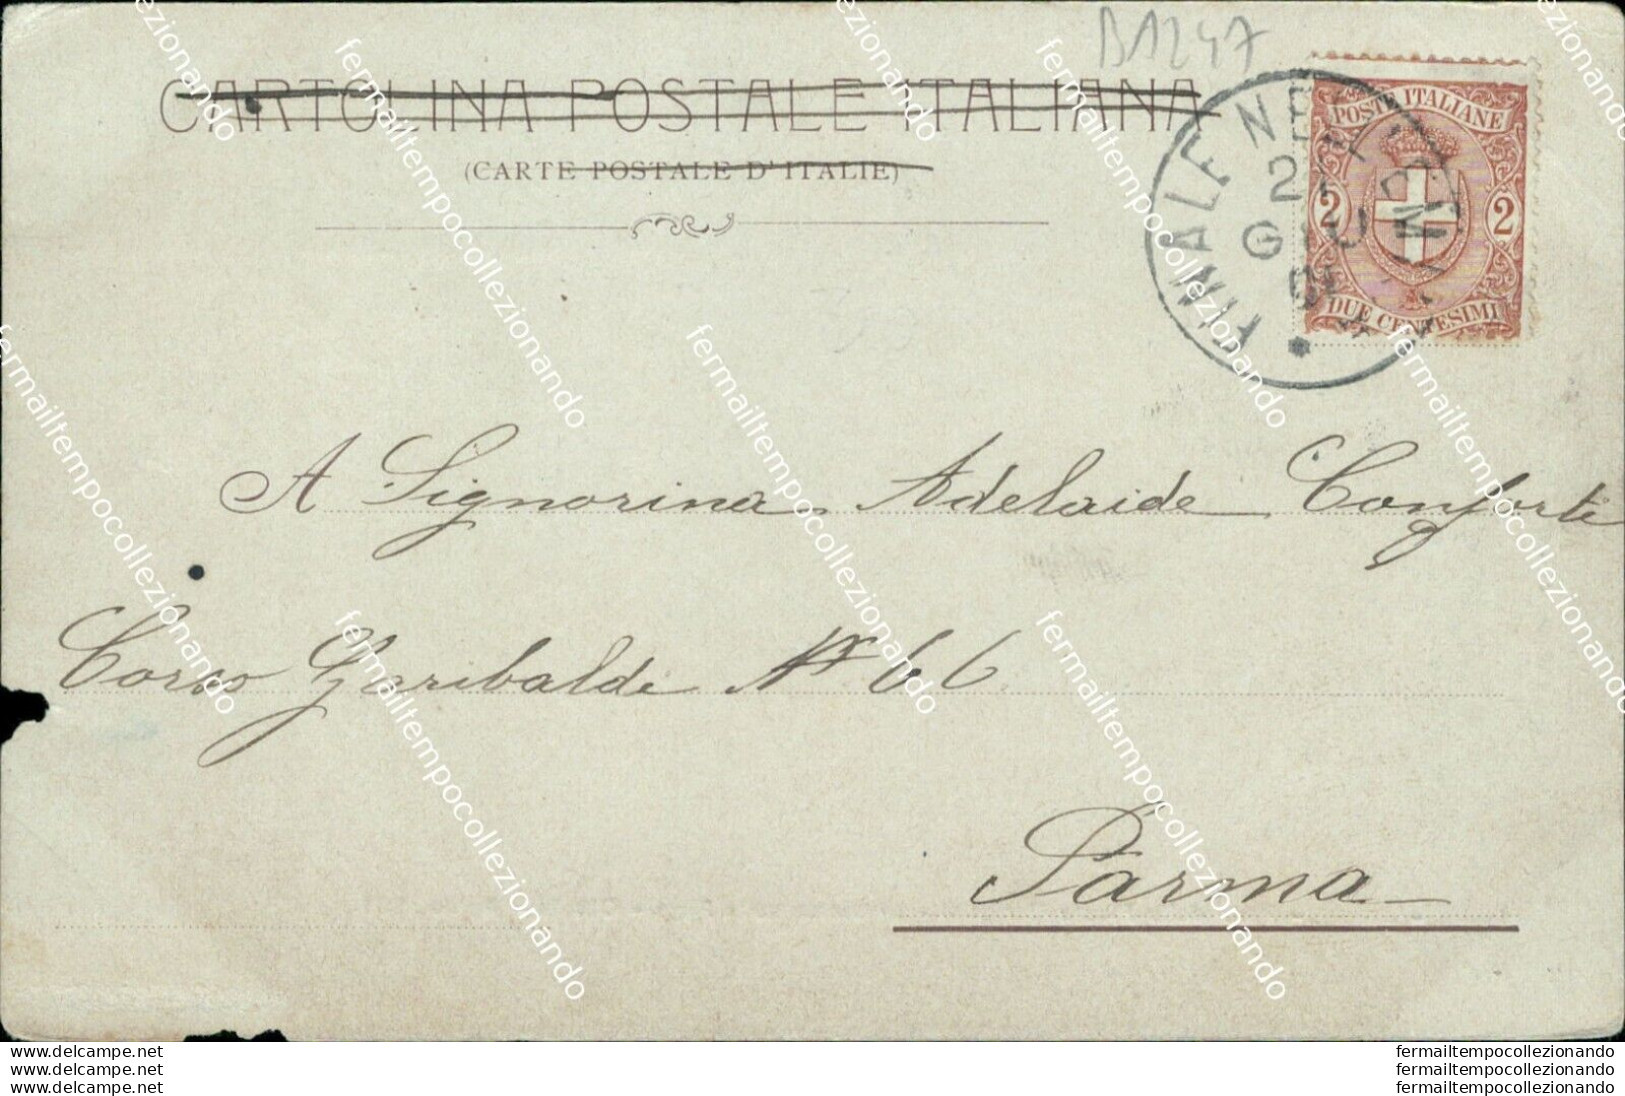 B1247
CARTOLINA POSTALE ITALIANA
(CARTE POSTALE D'ITALIE)
POSTE ITALIANE
2 2
DUE CENTESIMI
FINALE NELL'EMILIA
GIU
01
A Signorina Adelaide Conforte
Corso Garibalde N° 66
Parma
fermailtempocollezionando
www.delcampe.net
www.delcampe.net
www.delcampe.net
fermailtempocollezionando
fermailtempocollezionando
fermailtempocollezionando